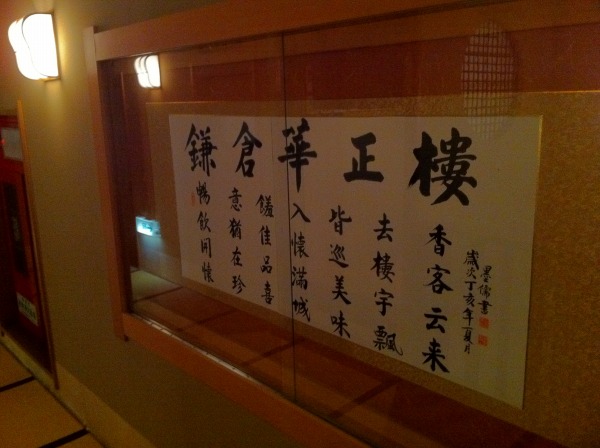 鎌倉華正樓
香客云来
去樓宇飄
皆巡美味
入懷滿城
饈佳品喜
意猶在珍
暢飲開懷
歲次丁亥年夏月
墨儒書